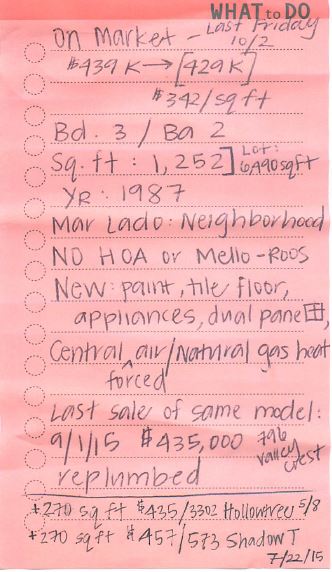 WHAT to DO
On Market - Last Friday
10/2
$439K → [429K]
$342/sq ft
Bd. 3 / Ba 2
Sq. ft : 1,252] Lot: 6,490 sqft
Yr : 1987
Mar Lado: Neighborhood
NO HOA or Mello-Roos
New: paint, tile floor,
appliances, dual pane 田,
Central ^ air/Natural gas heat
forced
Last sale of same model:
9/1/15 $435,000 796 Valley Crest
replumbed
+270 sq ft $435/3302 Hollowtree 5/8
+270 sq ft $457/573 Shadow T
7/22/15